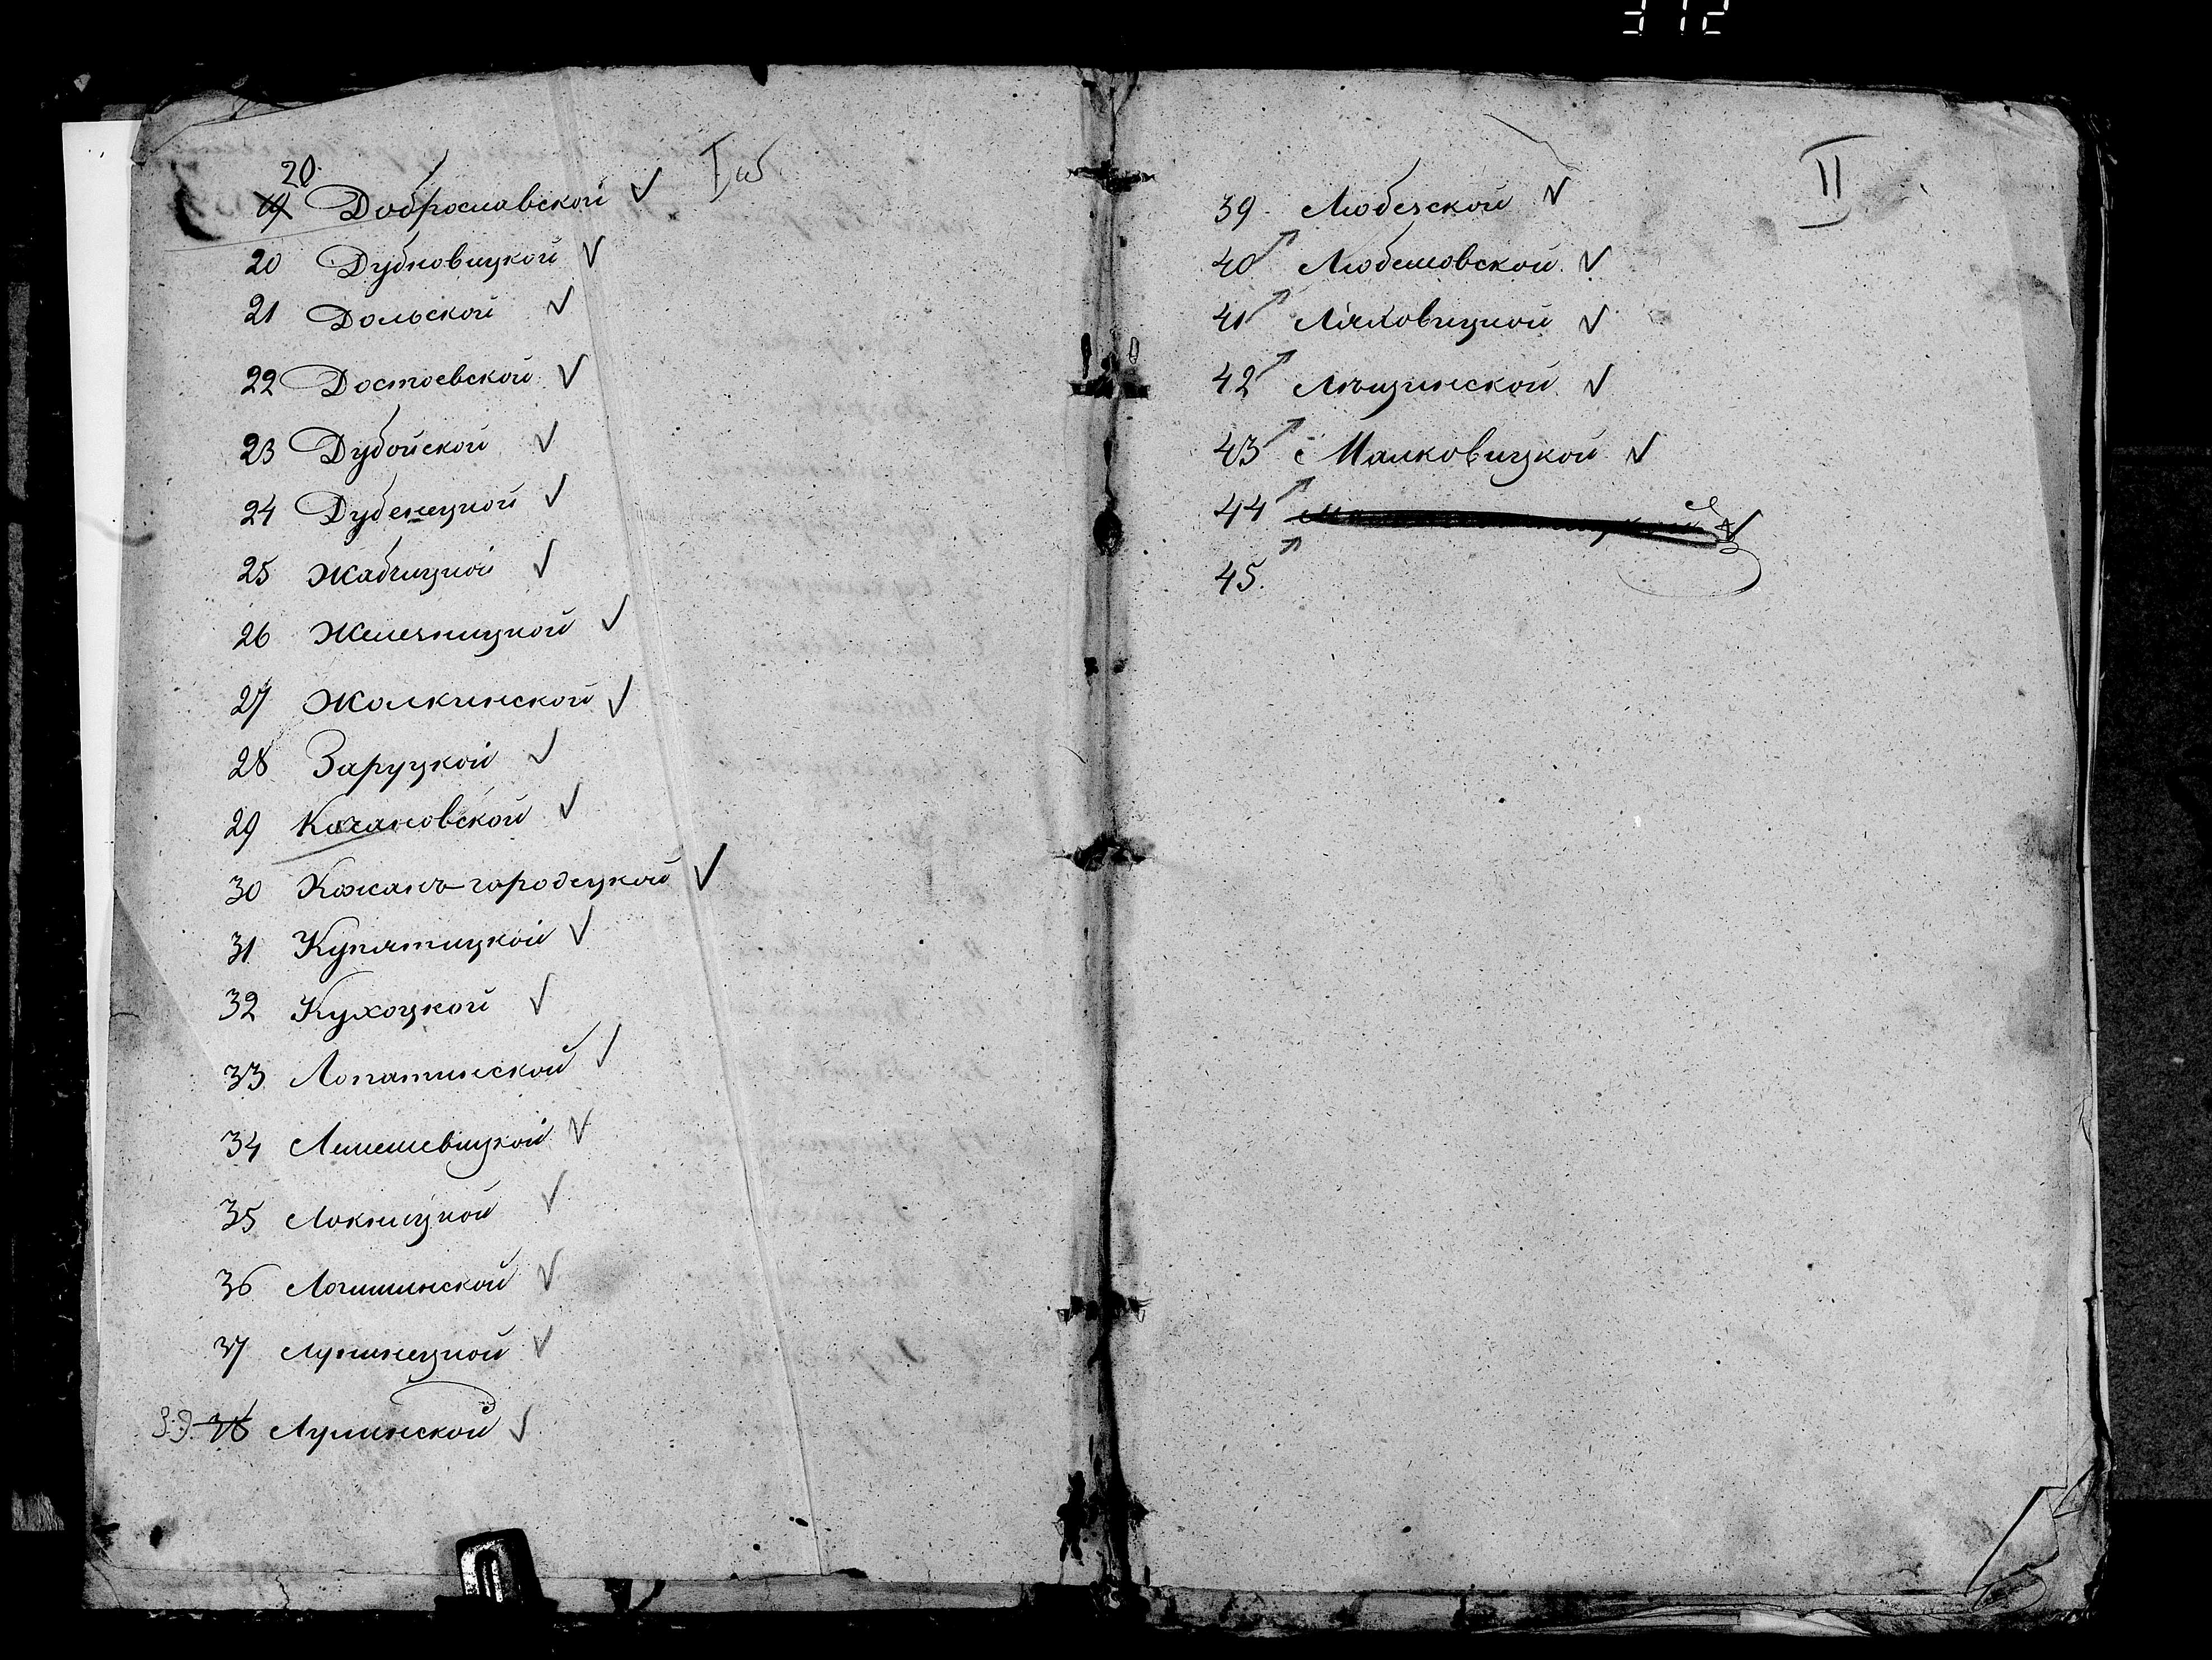 312
I об
20.
19 Доброславской
20 Дубновицкой
21 Дольской
22 Достоевской
23 Дубойской
24 Дубенецкой
25 Жабчицкой
26 Железницкой
27 Жолкинской
28 Заруцкой
29 Качановской
30 Кожанъ-городецкой
31 Купятицкой
32 Кухоцкой
33 Лопатинской
34 Лемешевицкой
35 Локницкой
36 Логишинской
37 Лунинецкой
39. 38 Лунинской
II
39. Любезской
40 Любешовской
41 Лясковицкой
42 Лыщинской
43 Малковицкой
44
45.